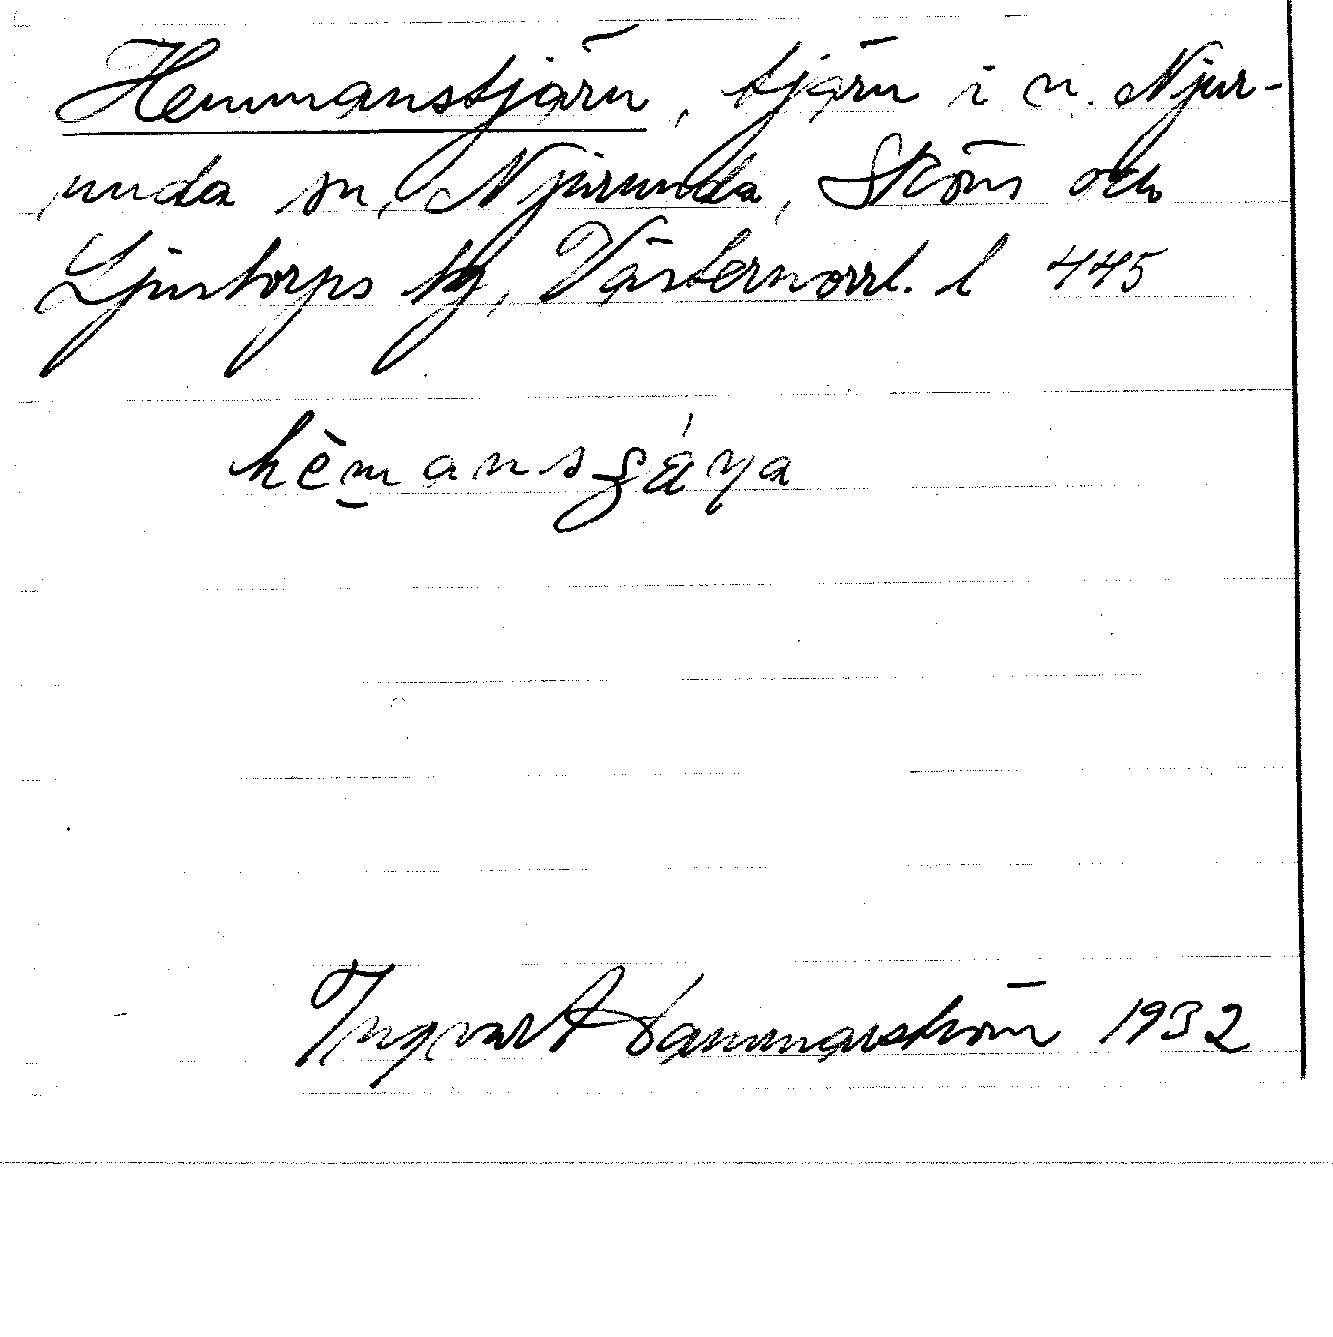 Hemmanstjärn, tjärn i n. Njur-
unda sn, Njurunda, Sköns och
Ljustorps tg, Västernorrl. l 445
Ingvar Hammarström 1932